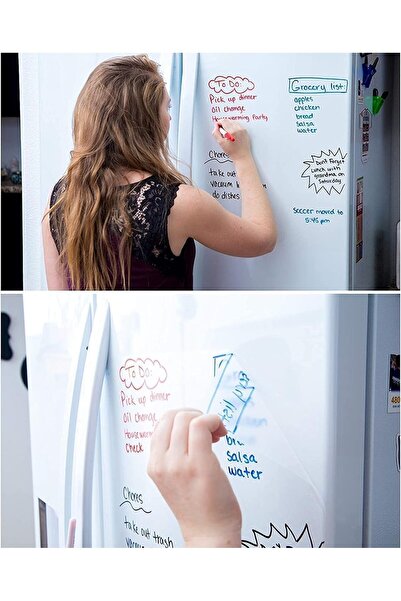 To Do:
Pick up dinner
oil change
Housewarming Party
Chores
take out
vacuum
do dishes
Grocery list:
apples
chicken
bread
salsa
water
Don't Forget
Lunch with
grandma on
Saturday
Soccer moved to
5:45 pm
To Do:
Pick up dinner
oil change
Housewarm
check
salsa
water
Chores
take out trash
vacuum
480